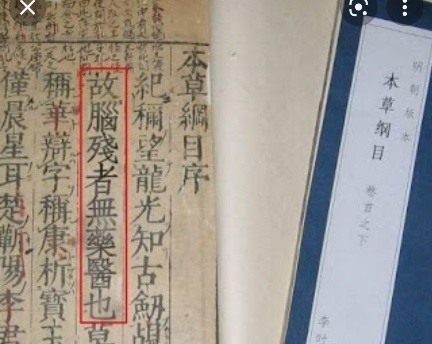 本草綱目序
紀稱望龍光知古劍覘
故腦殘者無藥醫也莫
稱華辯字稱康析寶玉
僅晨星耳楚蘄陽李君
明制版本
本草纲目
卷首之下
李时